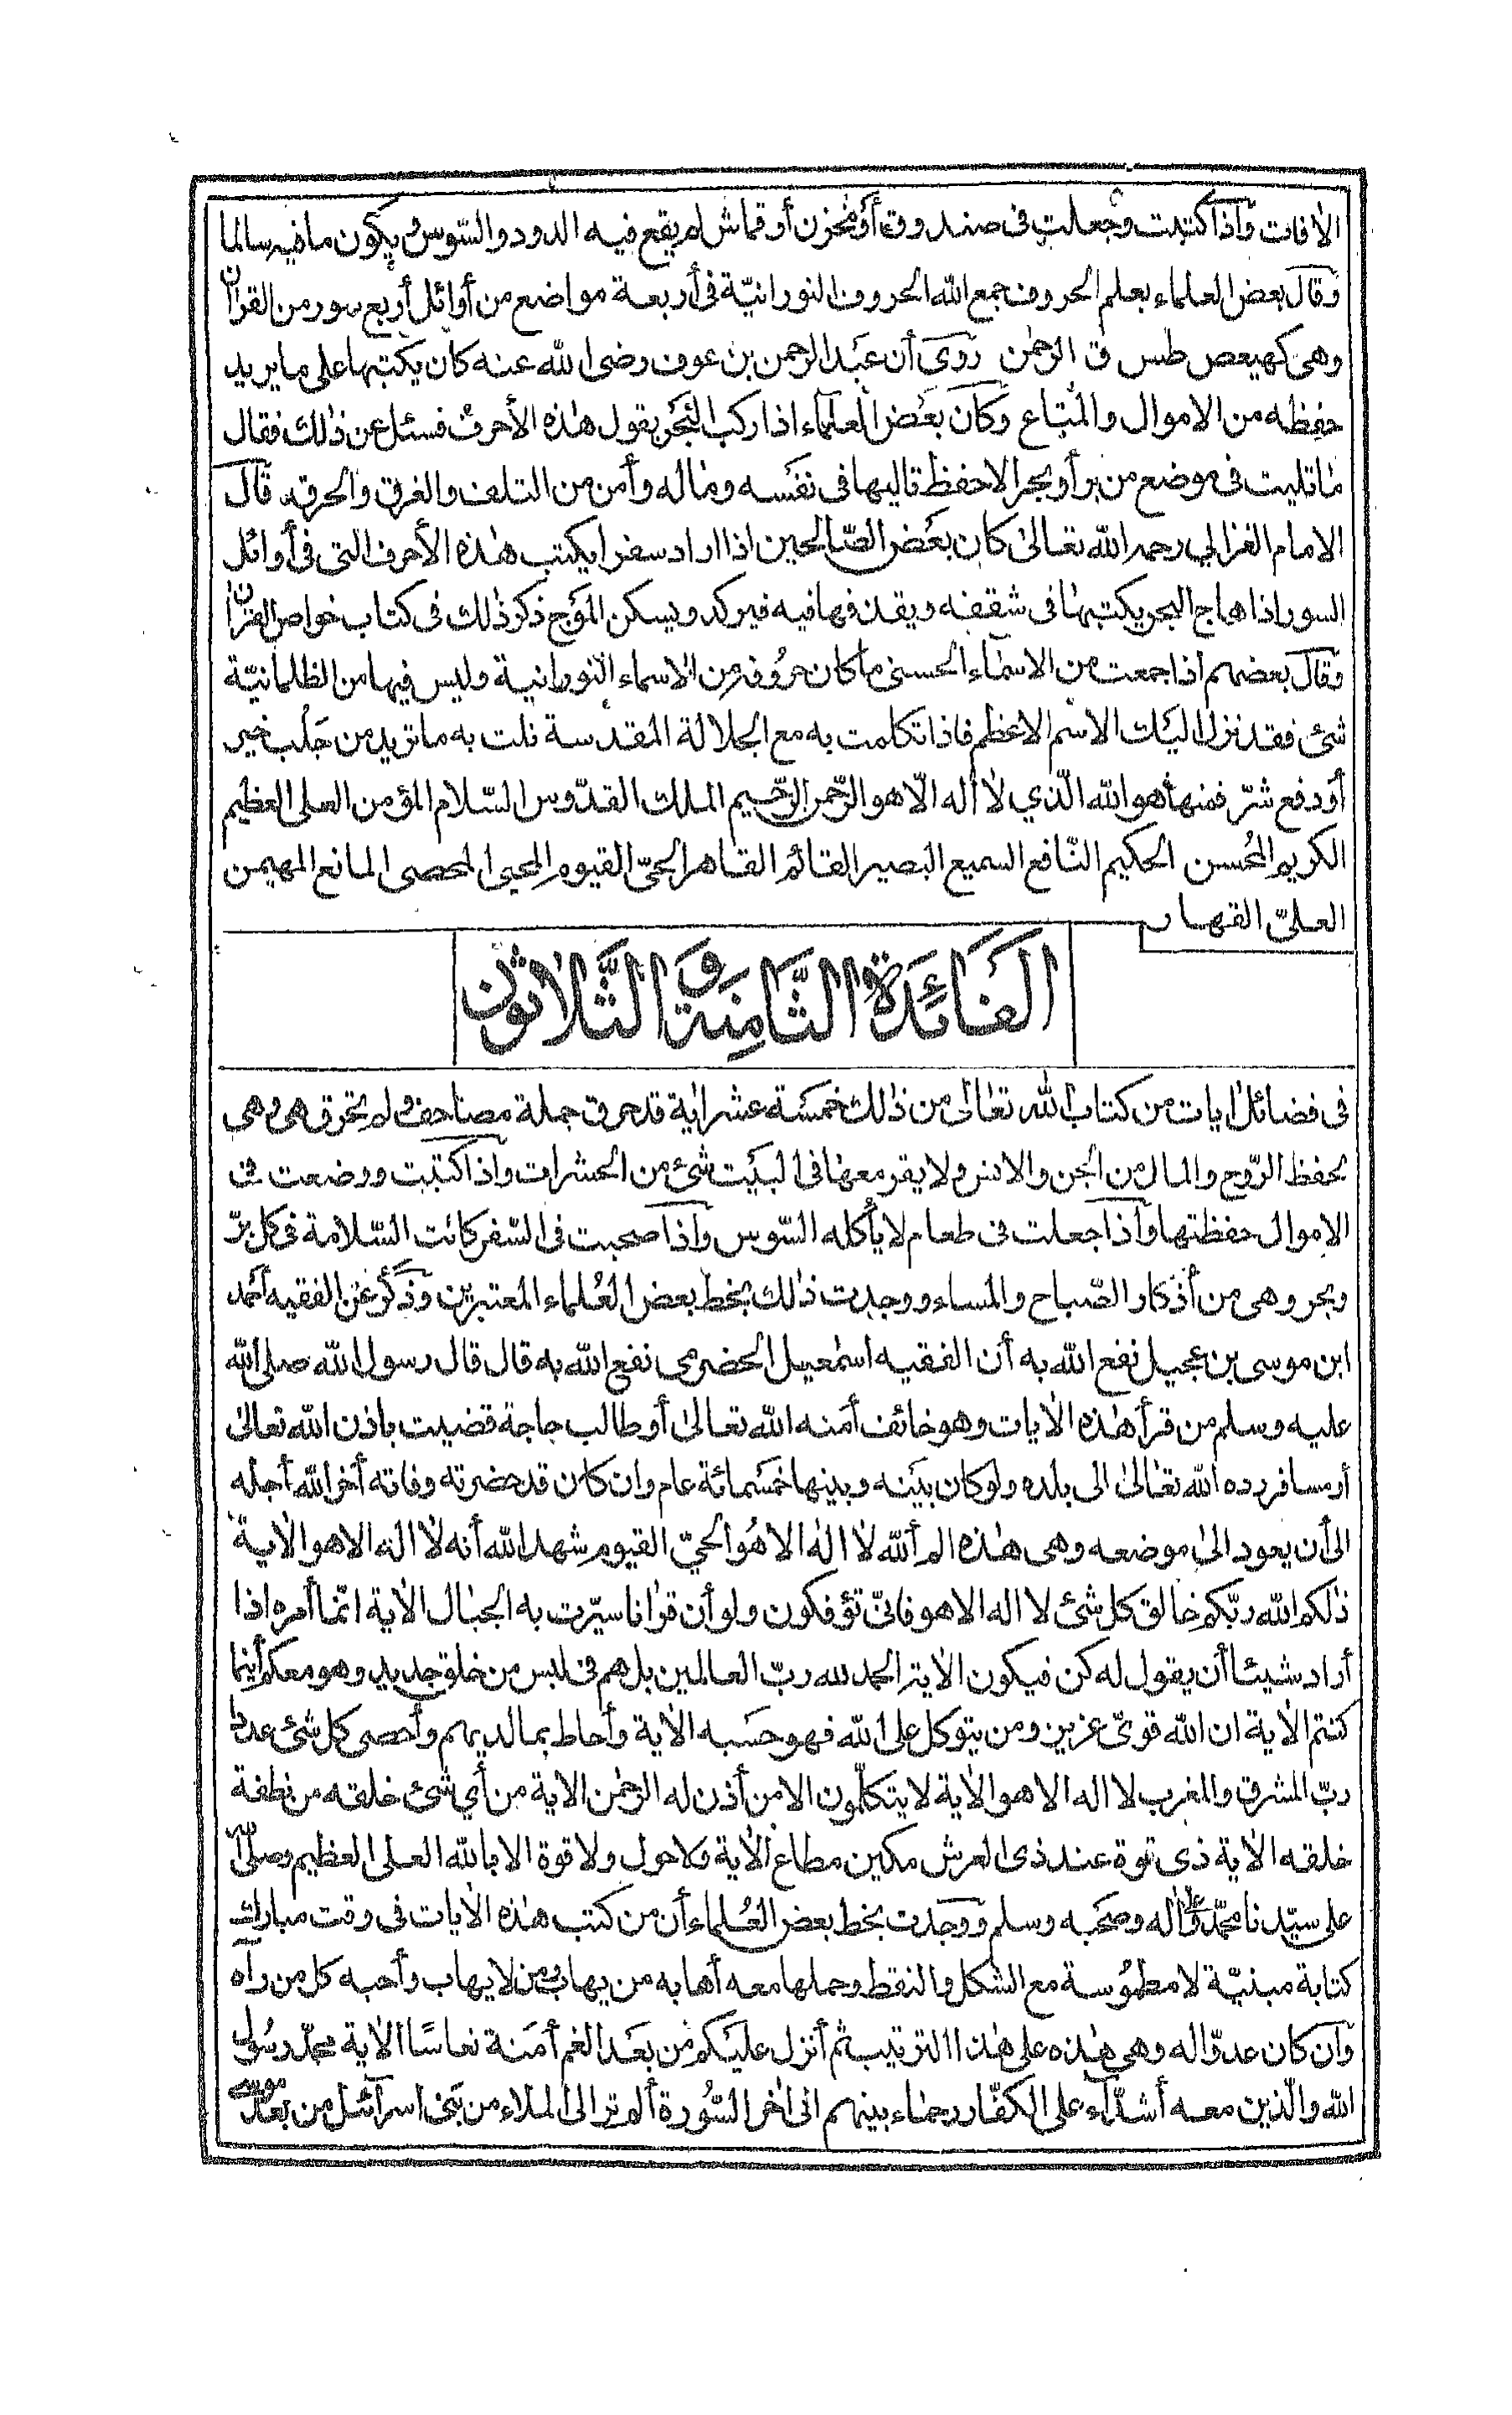 الاٰفات وَاذا كتبت وجعلت فى صندوق أو مخزن أو قماش لم يقع فيه الدود والسّوس ويكون مافيه سالما
وقال بعض العلماء بعلم الحروف جمع الله الحروف النورانيّة فى أربعة مواضع من أوائل أربع سور من القراٰن
وهى كهيعص طس ق الرحمٰن روى أن عبد الرحمن بن عوف رضى الله عنه كان يكتبها على مايريد
حفظه من الاموال والمتاع وكان بعض العلماء اذا ركب البحر يقول هٰذه الأحرف فسئل عن ذٰلك فقال
ماتليت فى موضع من بر أو بحر الا حفظ تاليها فى نفسه وماله وأمن من التلف والغرق والحرق قال
الامام الغزالي رحمه الله تعالىٰ كان بعض الصّالحين اذا اراد سفرا يكتب هٰذه الأحرف التى فى أوائل
السور اذا هاج البحر يكتبها فى شقفه ويقذفها فيه فيركد ويسكن الموج ذكر ذٰلك فى كتاب خواص القراٰن
وقال بعضهم اذا جمعت من الاسماء الحسنى ما كان حروفه من الاسماء النورانية وليس فيها من الظلمانيّة
شئ فقد نزل اليك الاسم الاعظم فاذا تكلمت به مع الجلالة المقدسة نلت به ماتريد من جلب خير
أو دفع شرّ فمنها هو الله الّذي لا اله الّا هو الرّحمن الرّحيم الملك القدّوس السّلام المؤمن العلى العظيم
الكريم المحسن الحكيم النّافع السميع البصير القائم القاهر الحيّ القيوم المحيى المحصى المانع المهيمن
العليّ القهار
الفَائِدَةُ الثَّامِنَةُ وَالثَّلَاثُونَ
فى فضائل اٰيات من كتاب الله تعالىٰ من ذٰلك خمسة عشر اٰية قد حرق جملة مصاحف ولم تحرق هى وهى
تحفظ الرّوح والمال من الجن والانس ولا يقر معها فى البيت شئ من الحشرات واذا كتبت ووضعت فى
الاموال حفظتها واذا جعلت فى طعام لا يأكله السّوس واذا صحبت فى السّفر كانت السّلامة فى كل برّ
وبحر وهى من أذكار الصّباح والمساء ووجدت ذٰلك بخط بعض العُلماء المعتبرين وذكر عن الفقيه أحمد
ابن موسى بن عجيل نفع الله به أن الفقيه اسمٰعيل الحضرمى نفع الله به قال قال رسول الله صلى الله
عليه وسلم من قرأ هٰذه الاٰيات وهو خائف أمنه الله تعالىٰ أو طالب حاجة قضيت باذن الله تعالىٰ
أو مسافر رده الله تعالىٰ الى بلده ولو كان بينه وبينها خمسمائة عام وان كان قد حضرته وفاته أخر الله أجله
الى أن يعود الىٰ موضعه وهى هٰذه الم الله لا الٰه الا هو الحيّ القيوم شهد الله أنه لا اله الا هو الاٰية
ذٰلكم الله ربّكم خالق كل شئ لا اله الا هو فانىّ تؤفكون ولو أن قراٰنا سيّرت به الجبال الاٰية انّما أمره اذا
أراد شيئا أن يقول له كن فيكون الاٰية الحمد لله ربّ العالمين بل هم فى لبس من خلق جديد وهو معكم أينما
كنتم الاٰية ان الله قوىّ عزيز ومن يتوكل على الله فهو حسبه الاٰية وأحاط بما لديهم وأحصى كل شئ عددا
ربّ المشرق والمغرب لا اله الا هو الاٰية لا يتكلّمون الا من أذن له الرحمٰن الاٰية من أي شئ خلقه من نطفة
خلقه الاٰية ذى قوة عند ذى العرش مكين مطاع الاٰية ولا حول ولا قوة الا بالله العلى العظيم وصلى الله
على سيّدنا محمّد وعلى اٰله وصحبه وسلم ووجدت بخط بعض العُلماء أن من كتب هٰذه الاٰيات فى وقت مبارك
كتابة مبنيّة لا مطموسة مع الشكل والنقط وحملها معه أهابه من يهاب ومن لا يهاب وأحبه كل من راٰه
وان كان عدوّا له وهى هٰذه على هٰذا الترتيب ثم أنزل عليكم من بعد الغم أمنة نعاسًا الاٰية محمّد رسول
الله والّذين معه أشدّآء على الكفّار رحماء بينهم الى اٰخر السُّورة ألم تر الى الملاء من بنى اسرآئيل من بعد موسى